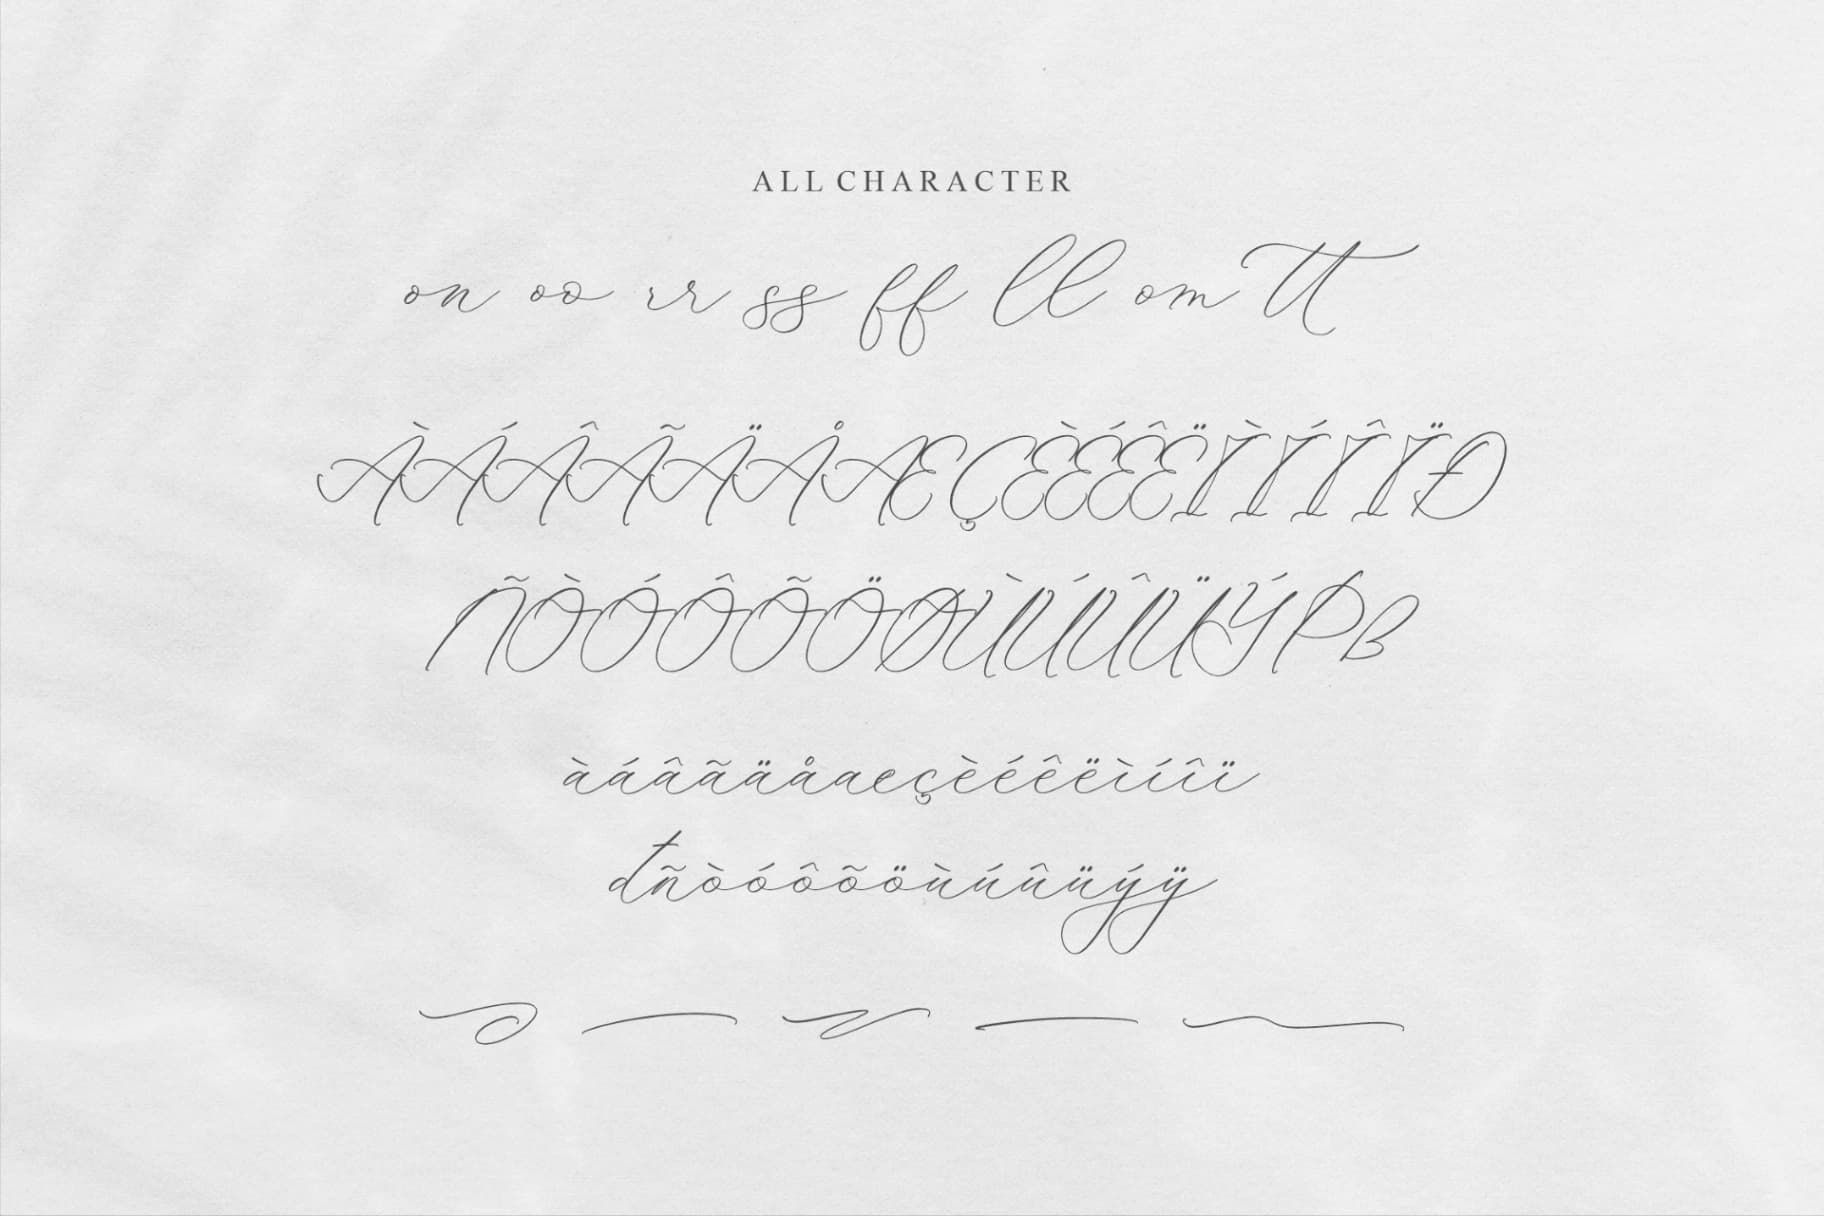 ALL CHARACTER
on oo rr ss ff ll om tt
ÀÁÂÃÄÅÆÇÈÉÊËÌÍÎÏÐ
ÑÒÓÔÕÖØÙÚÛÜÝÞß
àáâãäåæçèéêëìíîï
đñòóôõöùúûüýÿ